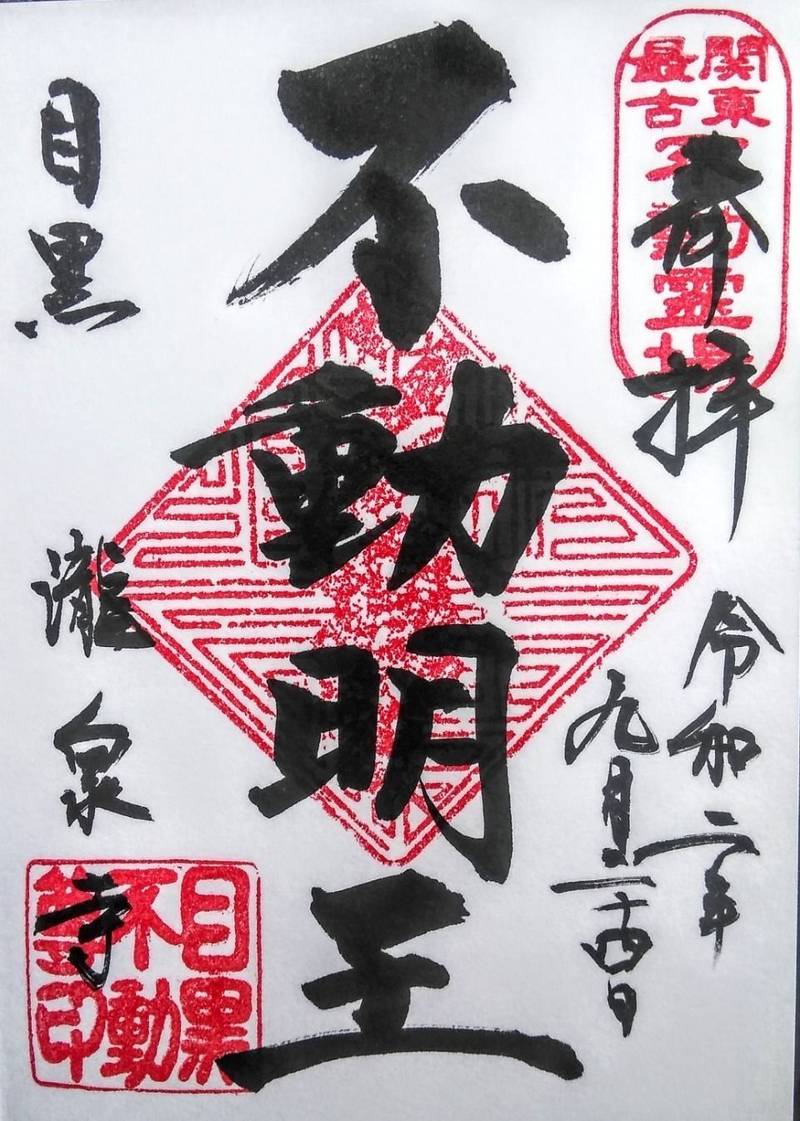 関東
最古
不動霊場
奉拝
令和二年
九月二十四日
不動明王
目黒
瀧泉寺
目黒
不動
印